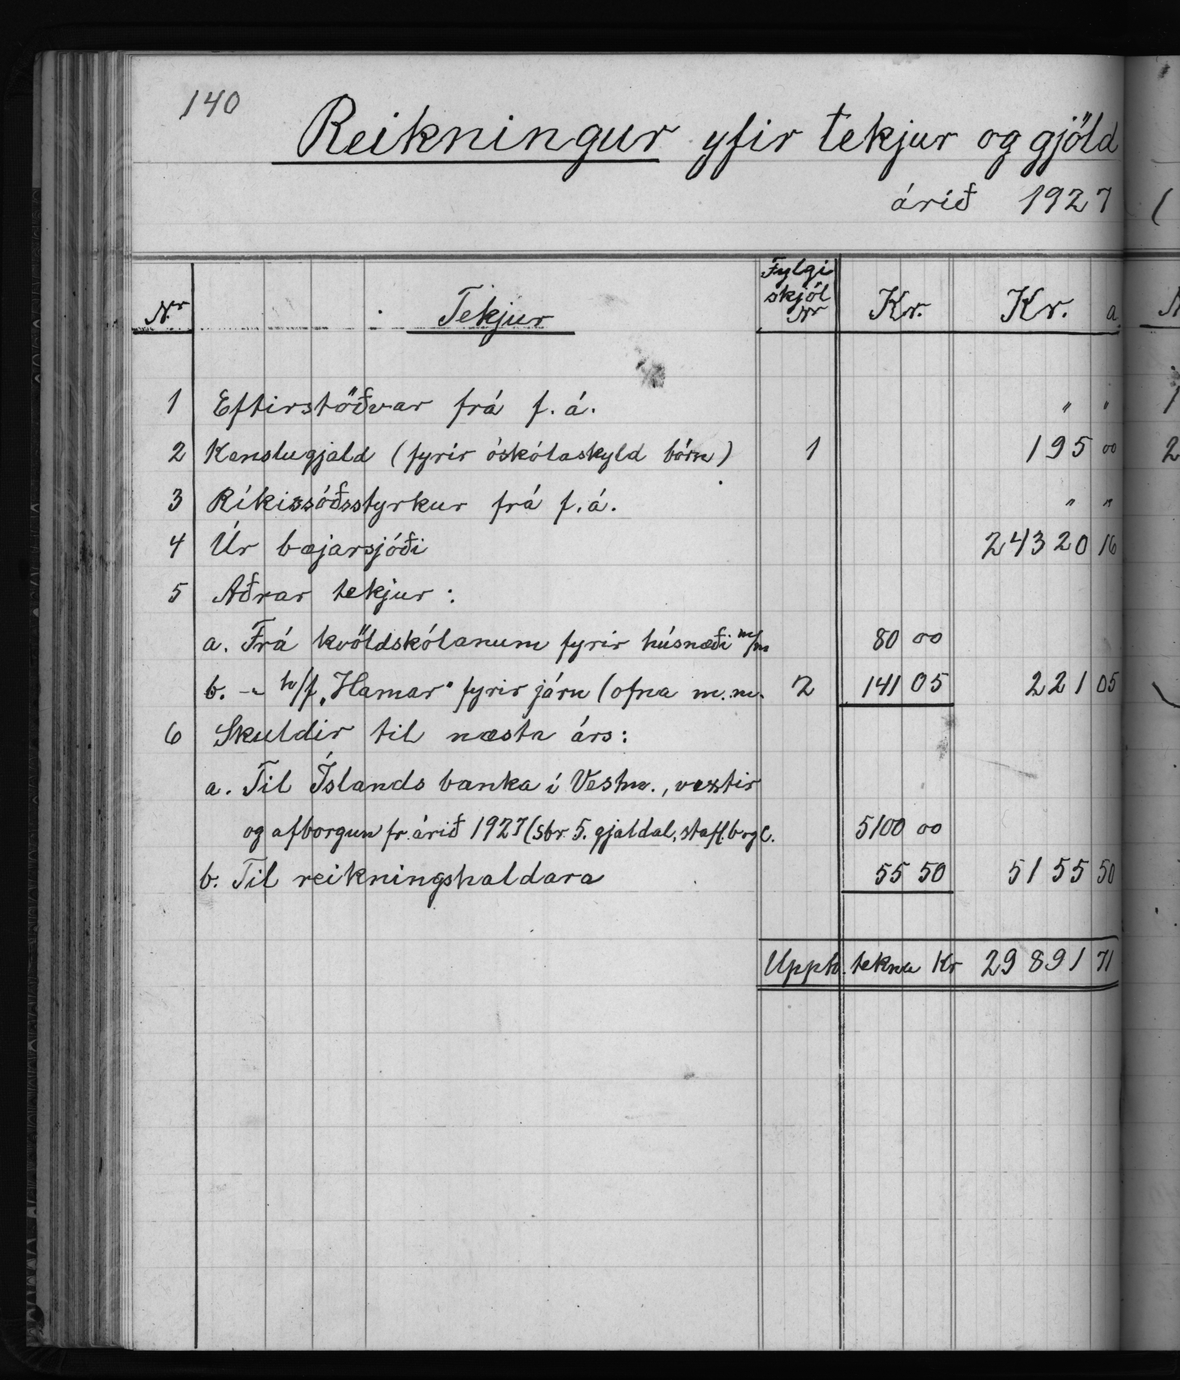 140
Reikningur yfir tekjur og gjöld
árið 1927
Nr Tekjur Fylgi skjöl Nr Kr. Kr. a
1 Eftirstöðvar frá f. á. " "
2 Kenslugjald (fyrir óskólaskyld börn) 1 195 00
3 Ríkissóðsstyrkur frá f. á. " "
4 Úr bæjarsjóði 24320 16
5 Aðrar tekjur :
a. Frá kvöldskólanum fyrir húsnæði m/m 80 00
b. -"- h/f „Hamar" fyrir járn (ofna m.m. 2 141 05 221 05
6 Skuldir til næsta árs:
a. Til Íslands banka í Vestm., vextir
og afborgun fr. árið 1927 (sbr 5. gjaldal, stafl. b og c. 5100 00
b. Til reikningshaldara 55 50 5155 50
Upph. tekna Kr 29891 71